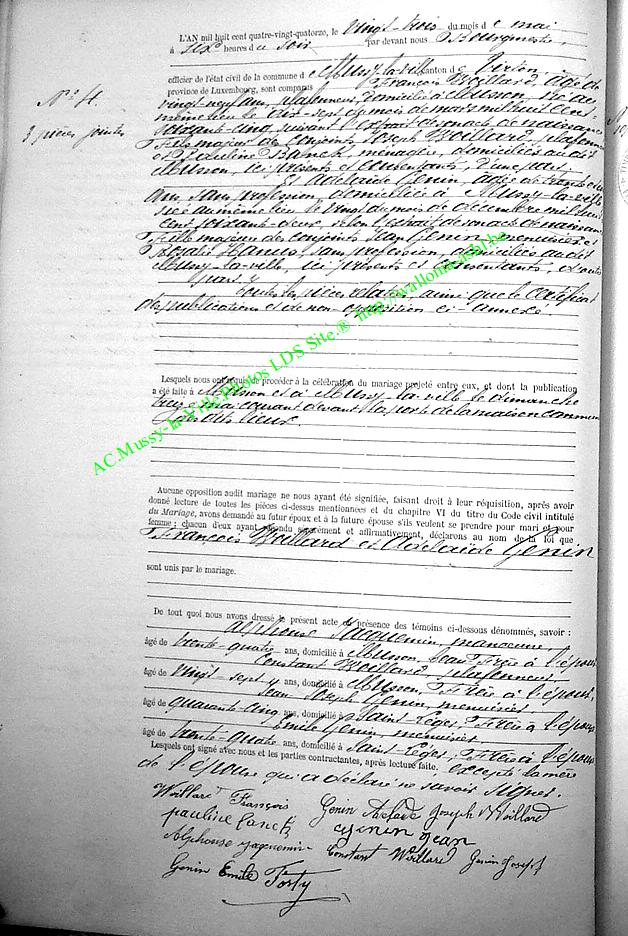 L'AN mil huit cent quatre-vingt-quatorze, le vingt-trois du mois de mai
à six heures du soir par devant nous Bourgmestre,
officier de l'état civil de la commune de Mussy-la-ville canton de Virton
province de Luxembourg, sont comparus François Woillard, âgé de
N° 4.
vingt-neuf ans, plafonneur, domicilié à Musson, né au
même lieu le dix-sept du mois de mars mil huit cent
3 pièces jointes
soixante-cinq, suivant l'extrait de son acte de naissance
Fils majeur des conjoints Joseph Woillard, plafonneur
et Pauline Banck, ménagère, domiciliés au dit
Musson, ici présents et consentants, d'une part
Et Adelaïde Genin, âgée de trente et un
ans, sans profession, domiciliée à Mussy-la-ville
née au même lieu le vingt du mois de décembre mil huit
cent soixante-deux, selon l'extrait de son acte de naissance
Fille majeure des conjoints Jean Genin, menuisier et
Rosalie, sans profession, domiciliés au dit
Mussy-la-ville, ici présents et consentants, d'autre
part.
Toutes les pièces relatées, ainsi que le certificat
de publications et de non opposition ci-annexé.
Lesquels nous ont requis de procéder à la célébration du mariage projeté entre eux, et dont la publication
a été faite à Musson et à Mussy-la-ville le dimanche
treize mai courant devant la porte de la maison commune
des dits lieux.
Aucune opposition audit mariage ne nous ayant été signifiée, faisant droit à leur réquisition, après avoir
donné lecture de toutes les pièces ci-dessus mentionnées et du chapitre VI du titre du Code civil intitulé
du Mariage, avons demandé au futur époux et à la future épouse s'ils veulent se prendre pour mari et pour
femme ; chacun d'eux ayant répondu séparément et affirmativement, déclarons au nom de la loi que
François Woillard et Adelaïde Genin
sont unis par le mariage.
De tout quoi nous avons dressé le présent acte en présence des témoins ci-dessous dénommés, savoir :
Alphonse Jacquemin, manoeuvre,
âgé de trente-quatre ans, domicilié à Musson, beau-frère à l'époux
Constant Woillard, plafonneur
âgé de vingt-sept ans, domicilié à Musson, frère à l'époux,
Jean Joseph Genin, menuisier
âgé de quarante-cinq ans, domicilié à Saint-Léger, frère à l'épouse
Emile Genin, menuisier
âgé de trente-quatre ans, domicilié à Saint-Léger, frère à l'épouse
Lesquels ont signé avec nous et les parties contractantes, après lecture faite, excepté la mère
de l'épouse qui a déclaré ne savoir signer.
Woillard François Genin Adelade Joseph Woillard
pauline Banck Genin Jean
Alphonse Jaquemin Constant Woillard Genin Joseph
Genin Emile Forty
AC.Mussy-la-Ville.Photos LDS Site.® http://wallonia.ibbl.be